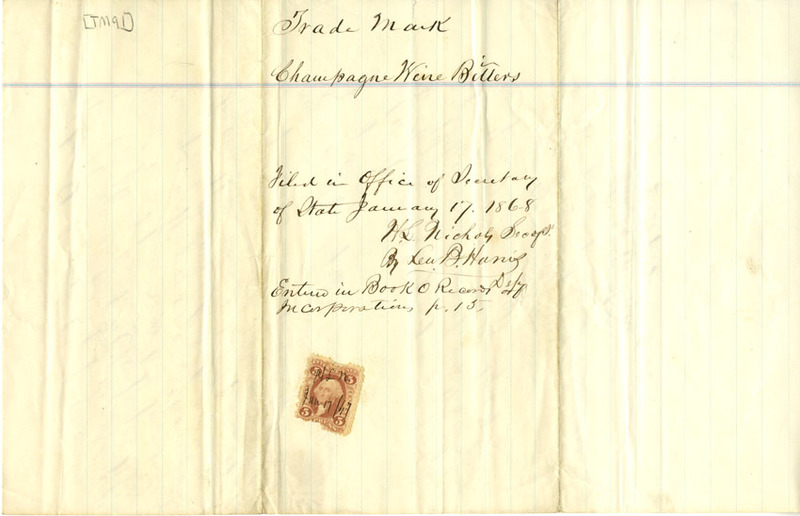 [TM91]
Trade Mark
Champagne Wine Bitters
Filed in Office of Secretary
of State January 17. 1868
H. L. Nichols Secy
By Leu B. Harris
Entered in Book O Record of
Incorporations p. 15.
5 5
5 5